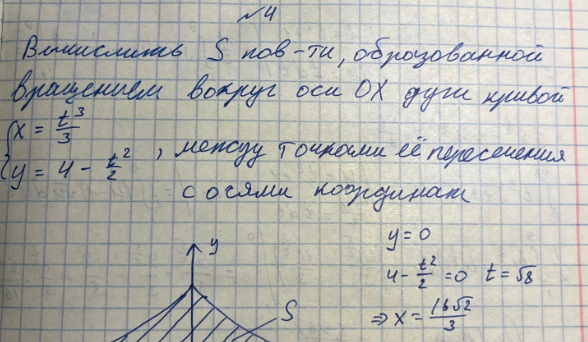 №4
Вычислить S пов-ти, образованной
вращением вокруг оси OX дуги кривой
{x = t³/3
{y = 4 - t²/2 , между точками её пересечения
с осями координат
y
S
y = 0
4 - t²/2 = 0 t = √8
⇒ x = 16√2/3